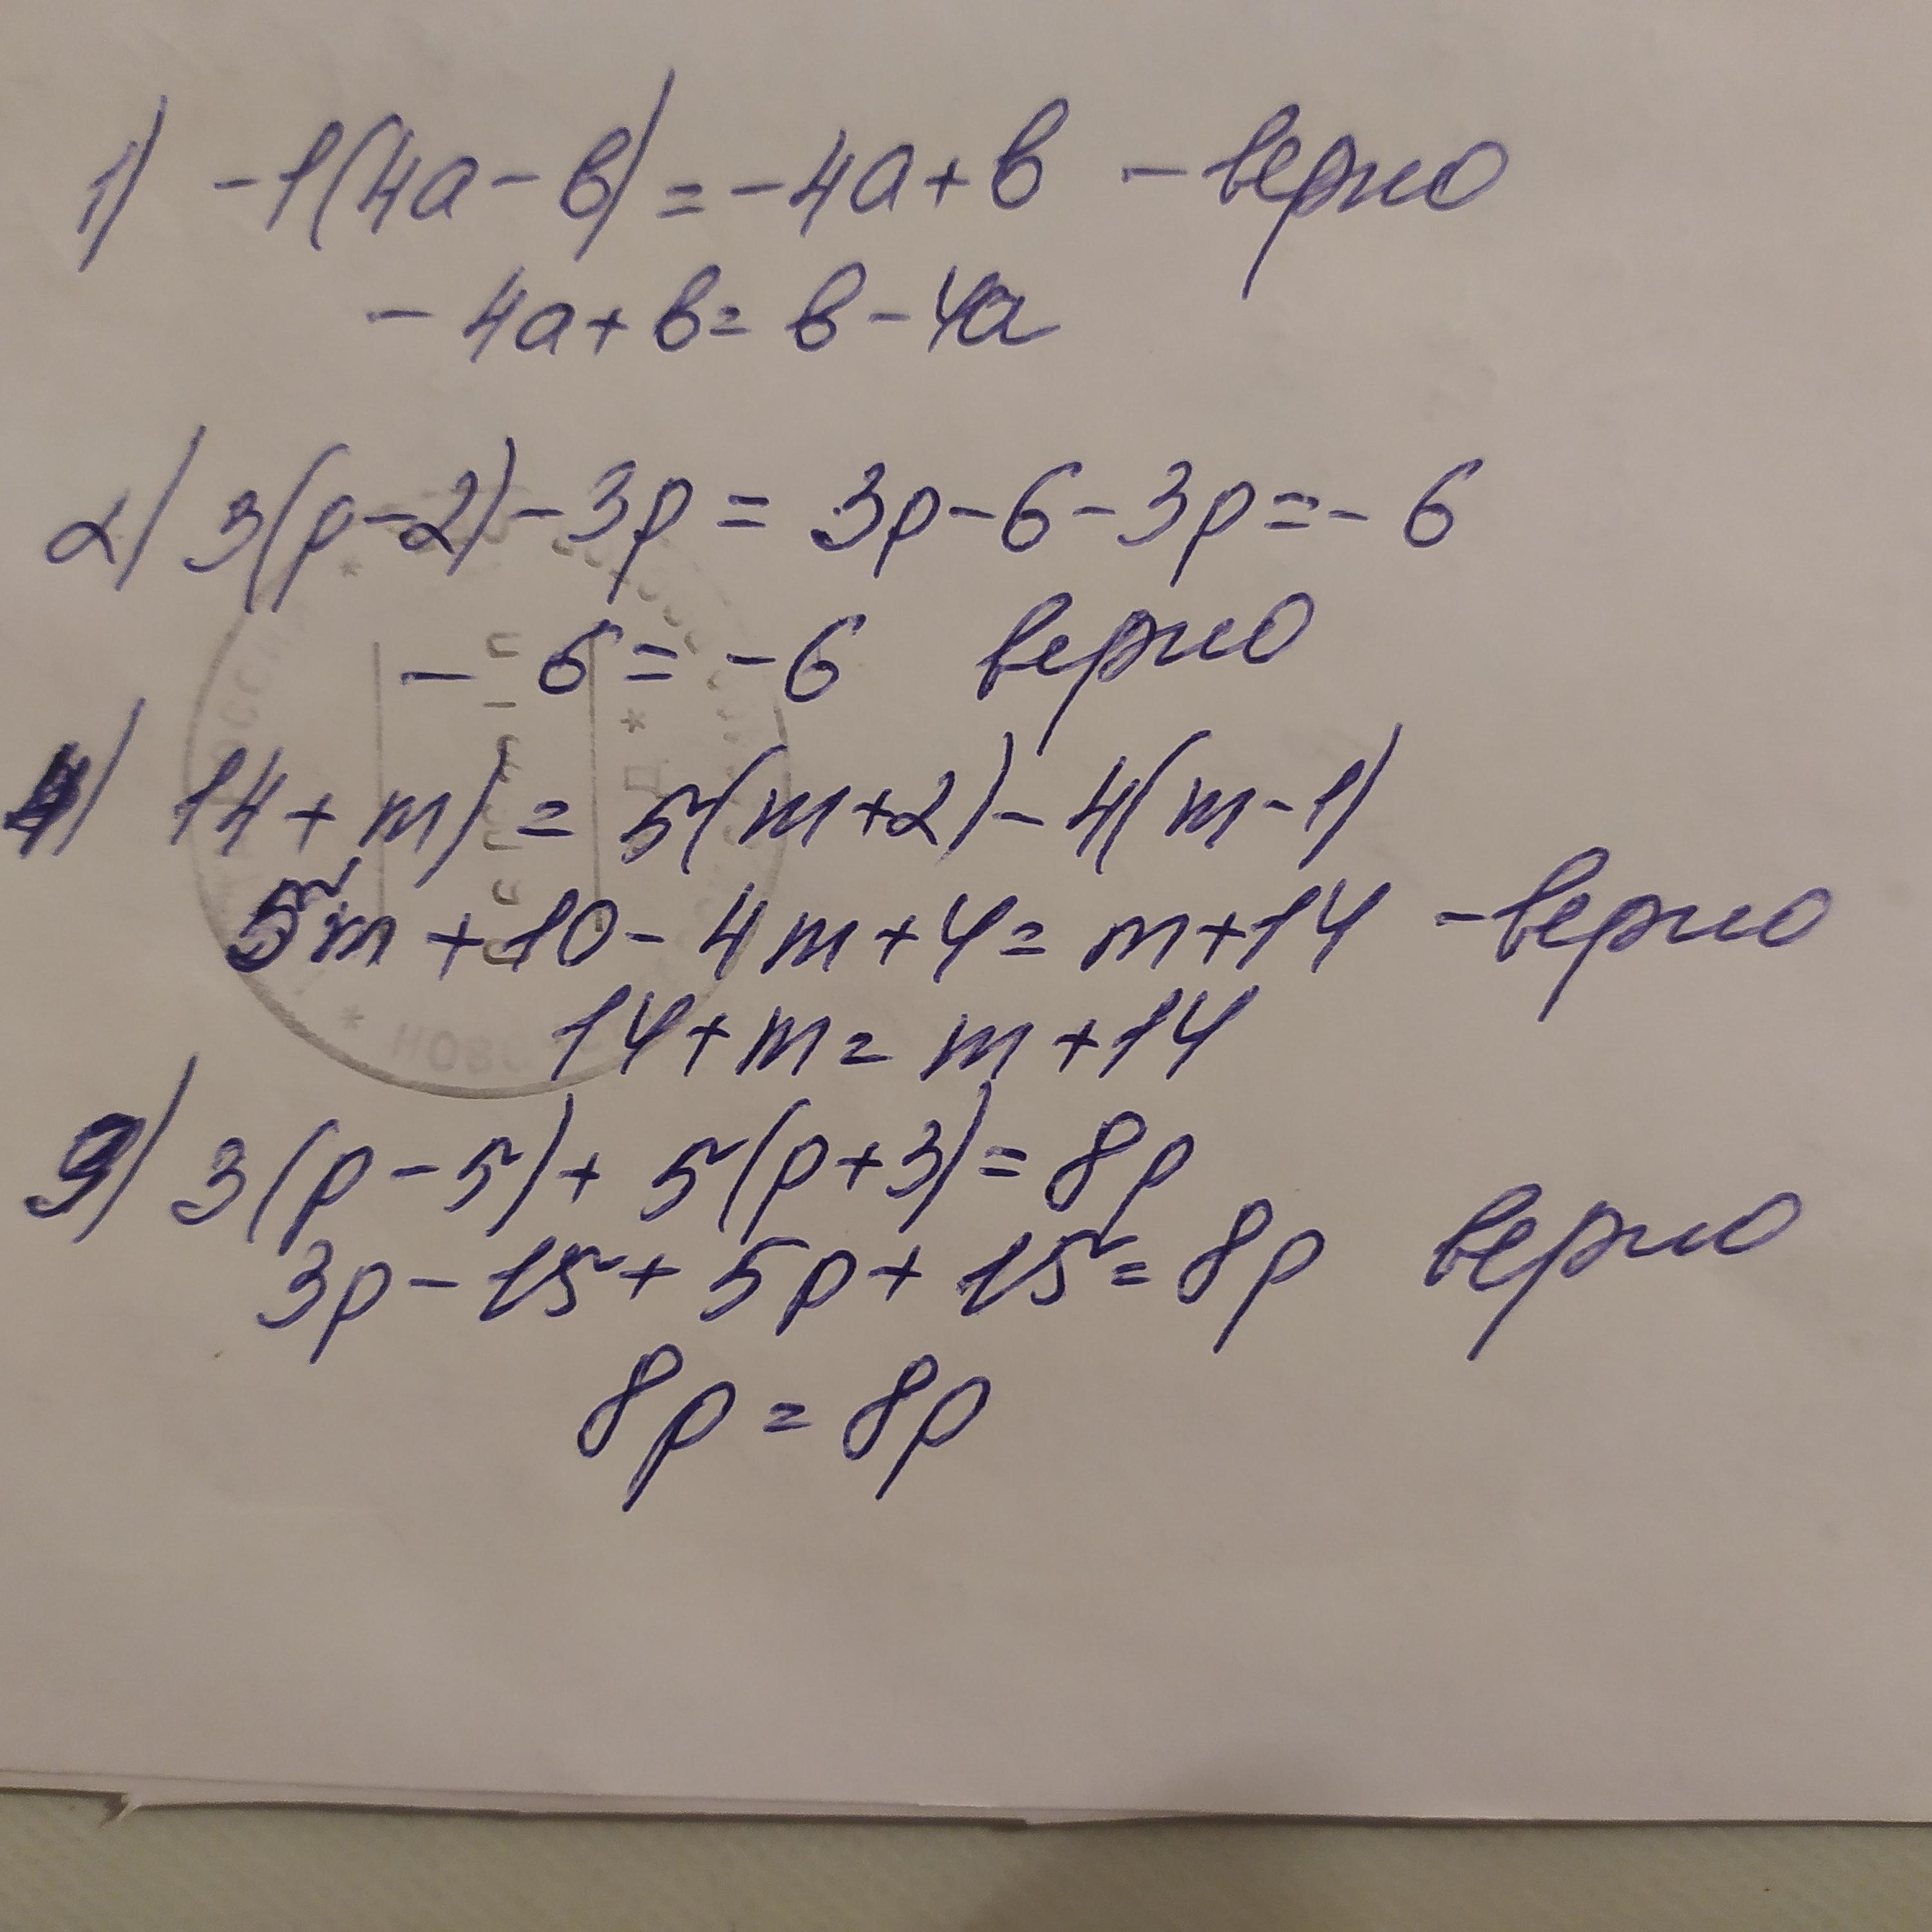 1) -1(4a-в)=-4a+в - верно
-4a+в=в-4a
2) 3(p-2)-3p=3p-6-3p=-6
-6=-6 верно
4) 14+m)=5(m+2)-4(m-1)
5m+10-4m+4=m+14 - верно
14+m=m+14
3) 3(p-5)+5(p+3)=8p
3p-15+5p+15=8p верно
8p=8p